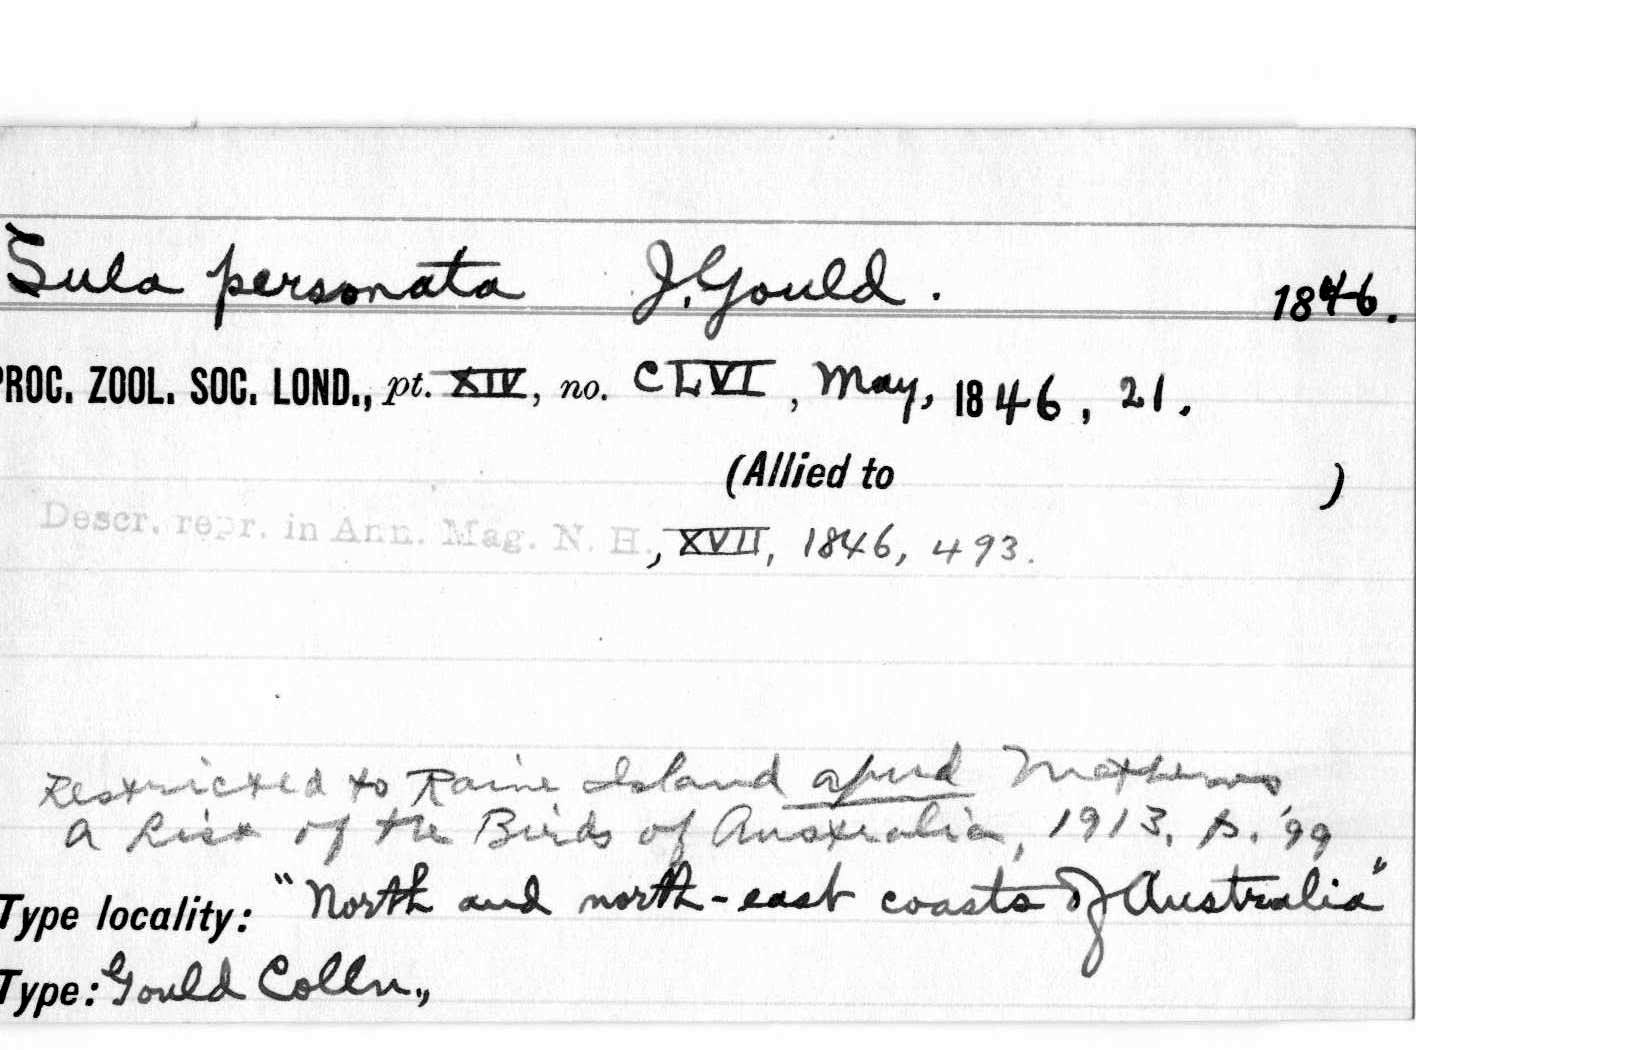 Sula personata J. Gould. 1846.
PROC. ZOOL. SOC. LOND., pt. XIV, no. CLVI, May, 1846, 21.
(Allied to )
Descr. repr. in Ann. Mag. N. H., XVII, 1846, 493.
Restricted to Raine Island apud Mathews,
A List of the Birds of Australia, 1913, p. 99
Type locality: "North and north-east coasts of Australia"
Type: Gould Colln.,